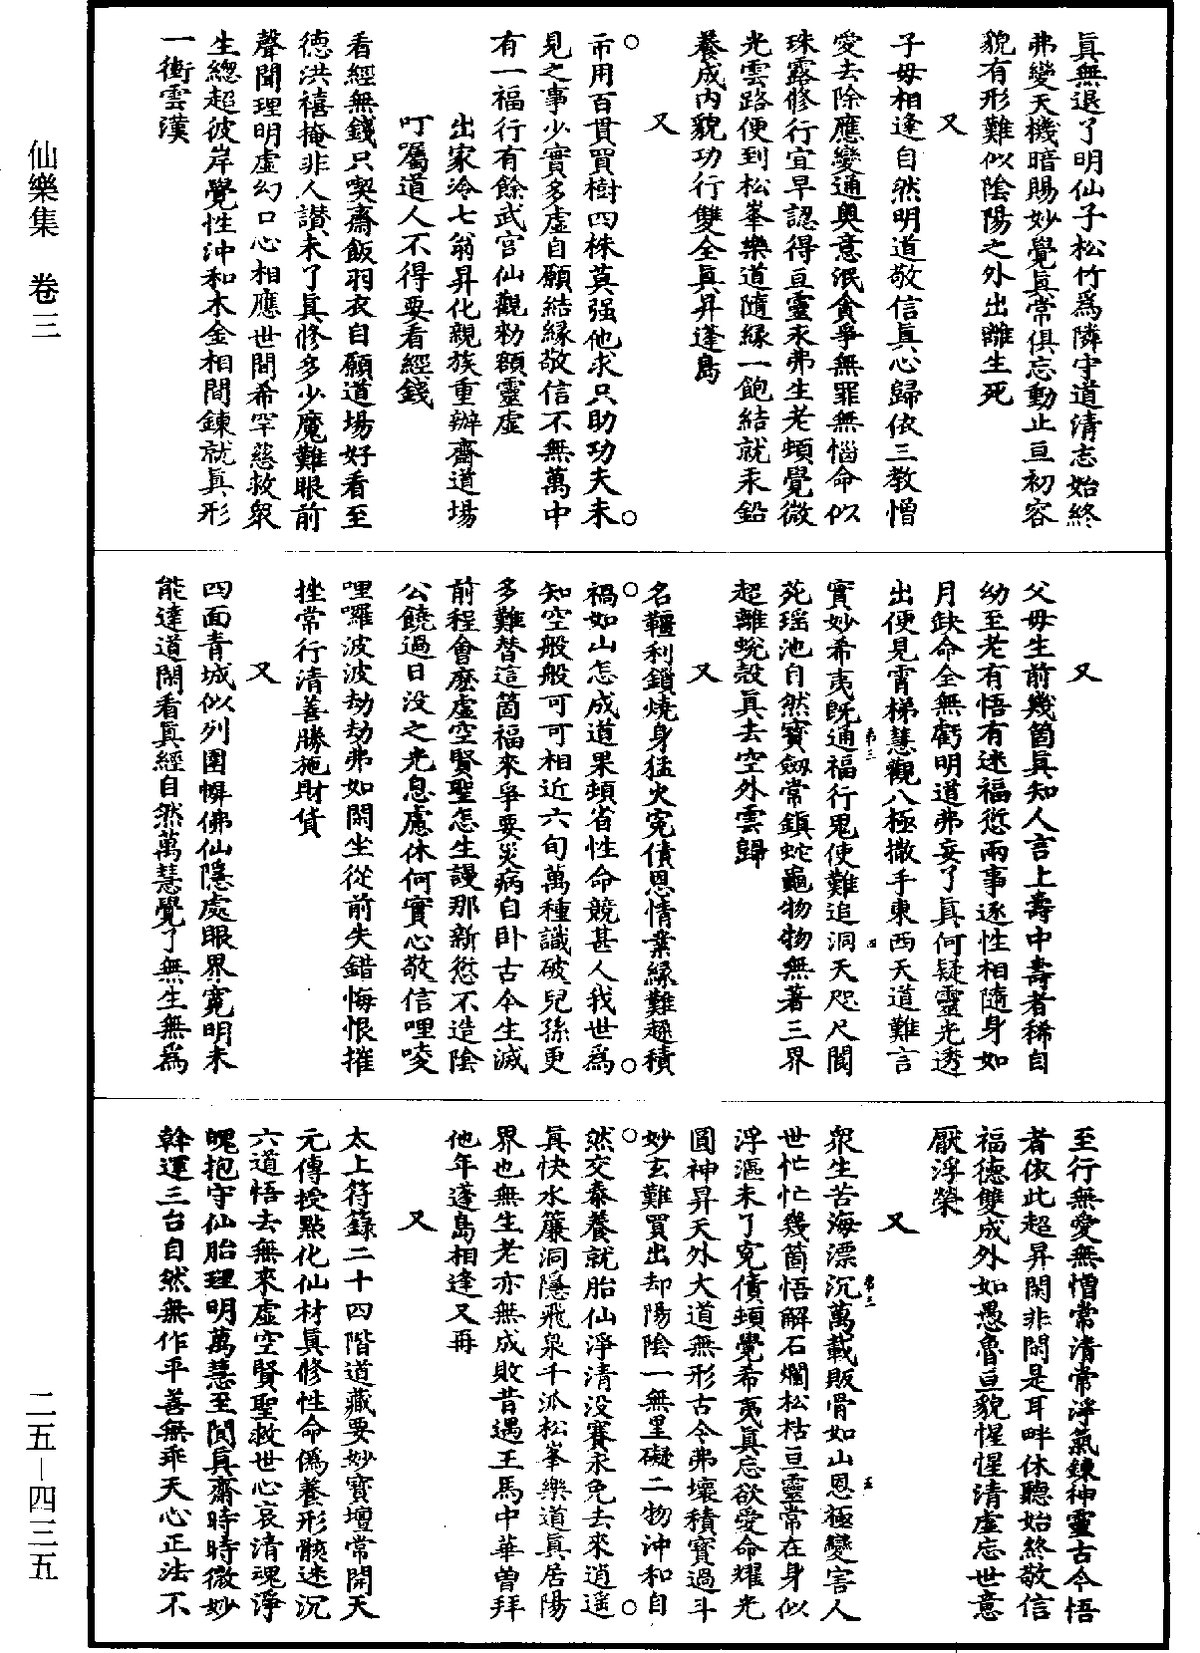 眞無退了明仙子松竹爲隣守道清志始終
弗變天機暗賜妙覺眞常俱忘動止亘初容
貌有形難似陰陽之外出離生死
又
子母相逢自然明道敬信眞心歸依三教憎
愛去除應變通奥意泯貪爭無罪無惱命似
珠露修行宜早認得亘靈永弗生老頓覺微
光雲路便到松峯樂道隨緣一飽結就汞鉛
養成内貌功行雙全眞昇蓬島
又
帀用百貫買樹四株莫强他求只助功夫未
見之事少實多虛自願結緣敬信不無萬中
有一福行有餘武宫仙觀勑額靈虛
出家冷七翁昇化親族重辦齋道場
叮囑道人不得要看經錢
看經無錢只喫齋飯羽衣自願道場好看至
德洪禧掩非人讃未了眞修多少魔難眼前
聲聞理明虛幻口心相應世間希罕慈救衆
生總超彼岸覺性沖和木金相間鍊就眞形
一衝雲漢
又
父母生前幾箇眞知人言上壽中壽者稀自
幼至老有悟有迷福愆兩事逐性相隨身如
月缺命全無虧明道弗妄了眞何疑靈光透
出便見霄梯慧觀八極撒手東西天道難言
實妙希夷既通福行鬼使難追洞天咫尺閬
苑瑶池自然寶劔常鎮蛇龜物物無著三界
超離蛻殼眞去空外雲歸
又
名韁利鎖燒身猛火寃債恩情業緣難趓積
禍如山怎成道果頓省性命競甚人我世爲
知空般般可可相近六旬萬種識破兒孫更
多難替這箇福來爭要災病自卧古今生滅
前程會麽虛空賢聖怎生謾那新愆不造陰
公饒過日没之光息慮休何實心敬信哩唛
哩囉波波劫劫弗如閑坐從前失錯悔恨摧
挫常行清善勝施財貨
又
四面青城似列圍幈佛仙隱處眼界寛明未
能達道閑看眞經自然萬慧覺了無生無爲
至行無愛無憎常清常淨氣鍊神靈古今悟
者依此超昇閑非閙是耳畔休聽始終敬信
福德雙成外如愚魯亘貌惺惺清虛忘世意
厭浮榮
又
衆生苦海漂沉萬載販骨如山恩極變害人
世忙忙幾箇悟解石爛松枯亘靈常在身似
浮漚未了寃債頓覺希夷眞忘欲愛命耀光
圓神昇天外大道無形古今弗壞積寶過斗
妙玄難買出却陽陰一無罣礙二物沖和自
然交泰養就胎仙淨清没賽永免去來逍遥
眞快水簾洞隱飛泉千派松峯樂道眞居陽
界也無生老亦無成敗昔遇王馬中華曾拜
他年蓬島相逢又再
又
太上符籙二十四階道藏要妙寳壇常開天
元傳授點化仙材眞修性命僞養形骸迷沉
六道悟去無來虛空賢聖救世心哀清瑰淨
魄抱守仙胎理明萬慧至閒眞齋時時微妙
斡運三台自然無作平善無乖天心正法不
仙樂集　卷三
二五－四三五